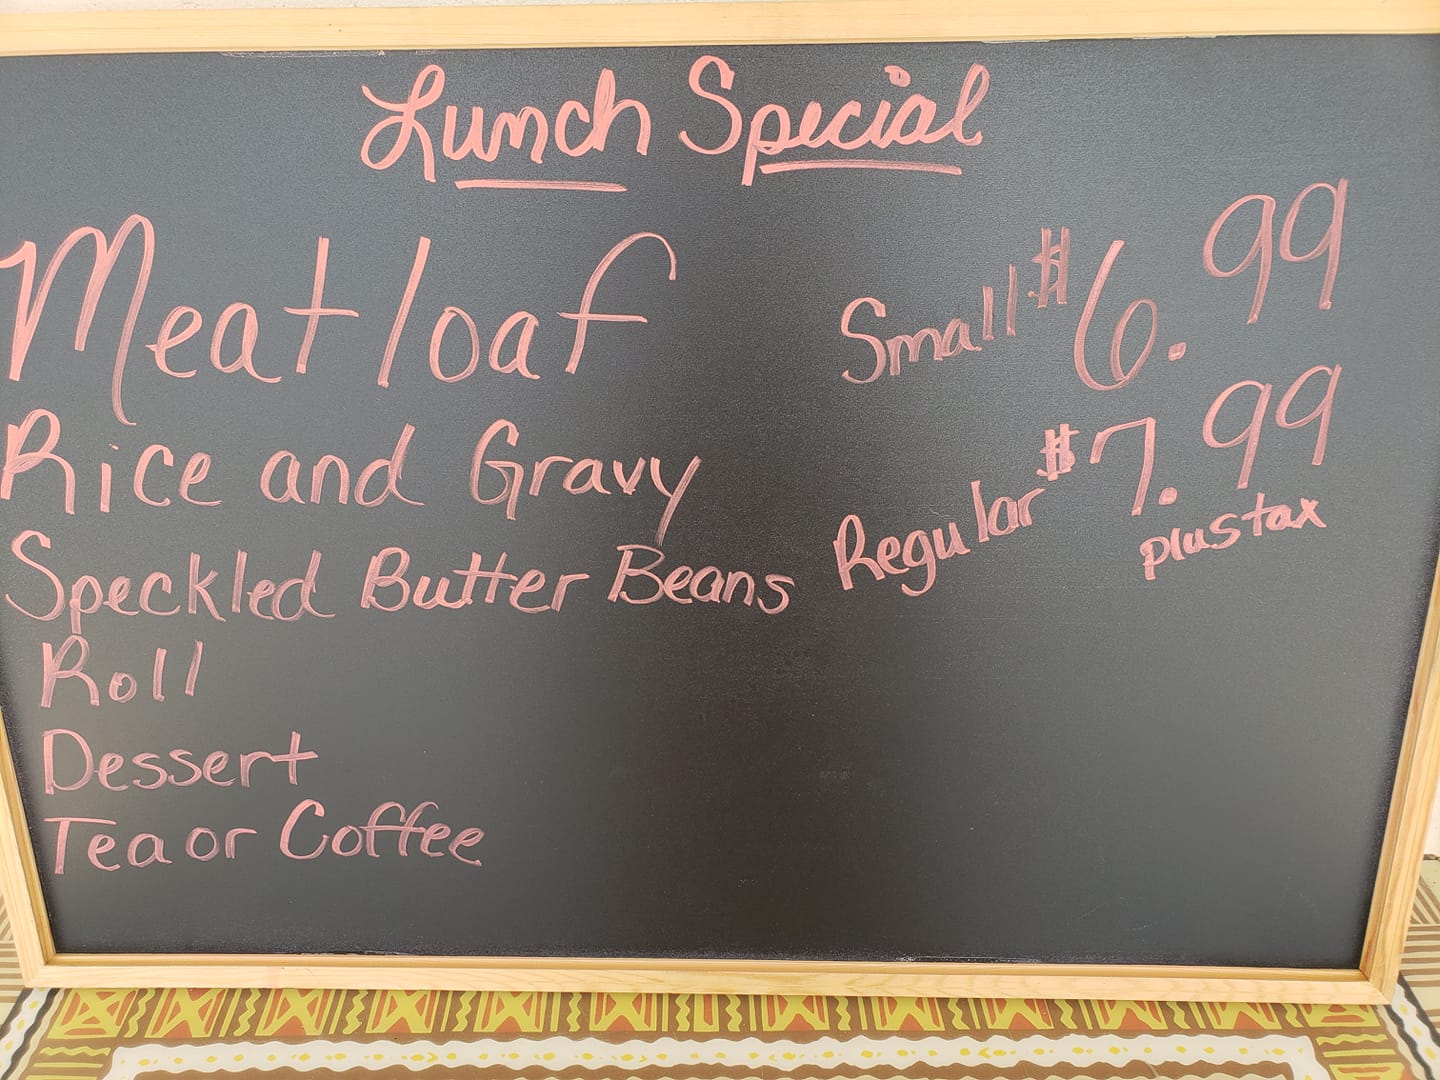 Lunch Special
Meatloaf
Small $6.99
Rice and Gravy
Regular $7.99
plus tax
Speckled Butter Beans
Roll
Dessert
Tea or Coffee